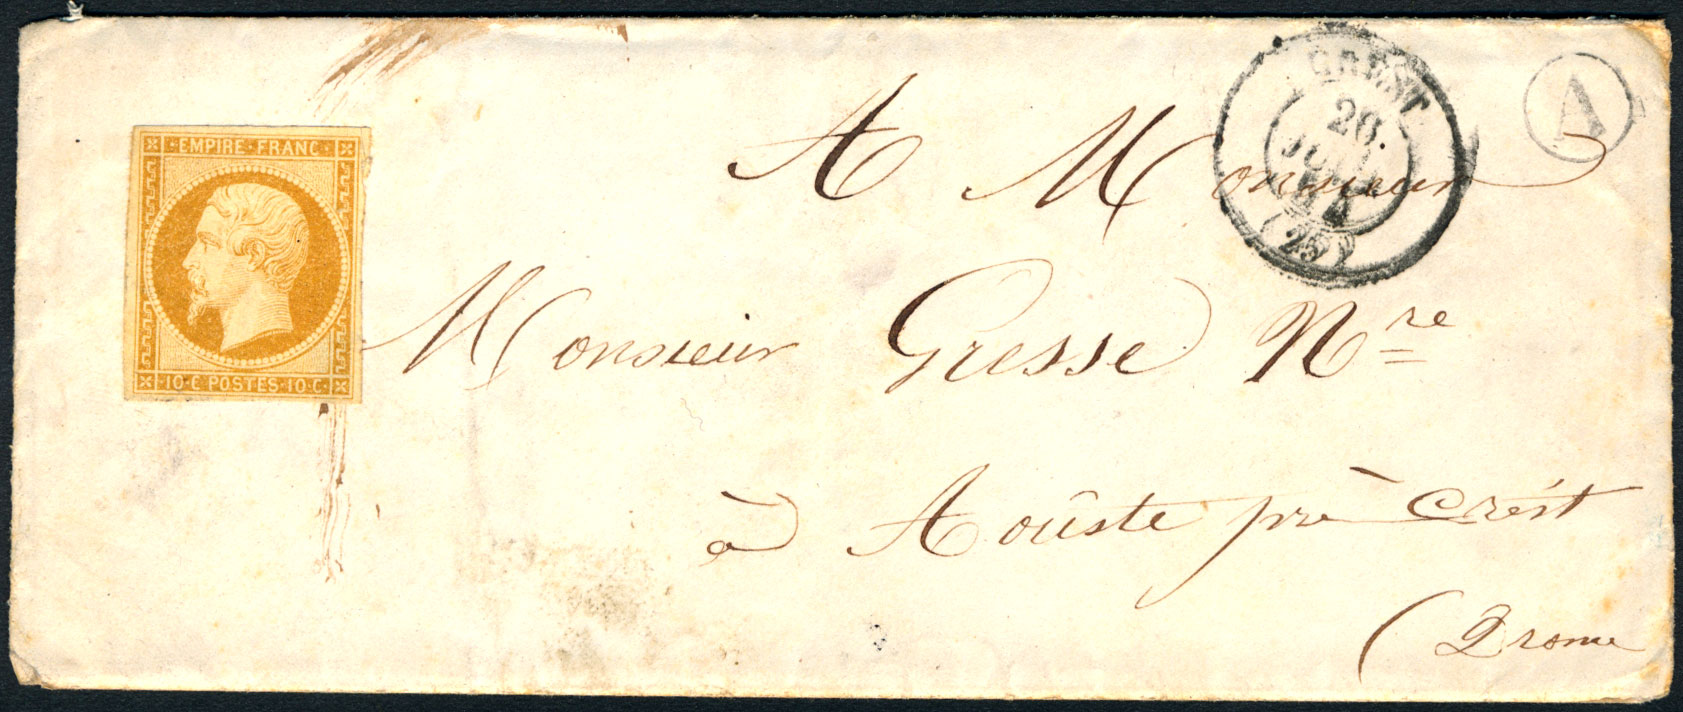 EMPIRE FRANC
10 C POSTES 10 C
CREST
26.
(25)
A
A Monsieur
Monsieur Gresse Nre
à Aoûste prè Crést
(Drome